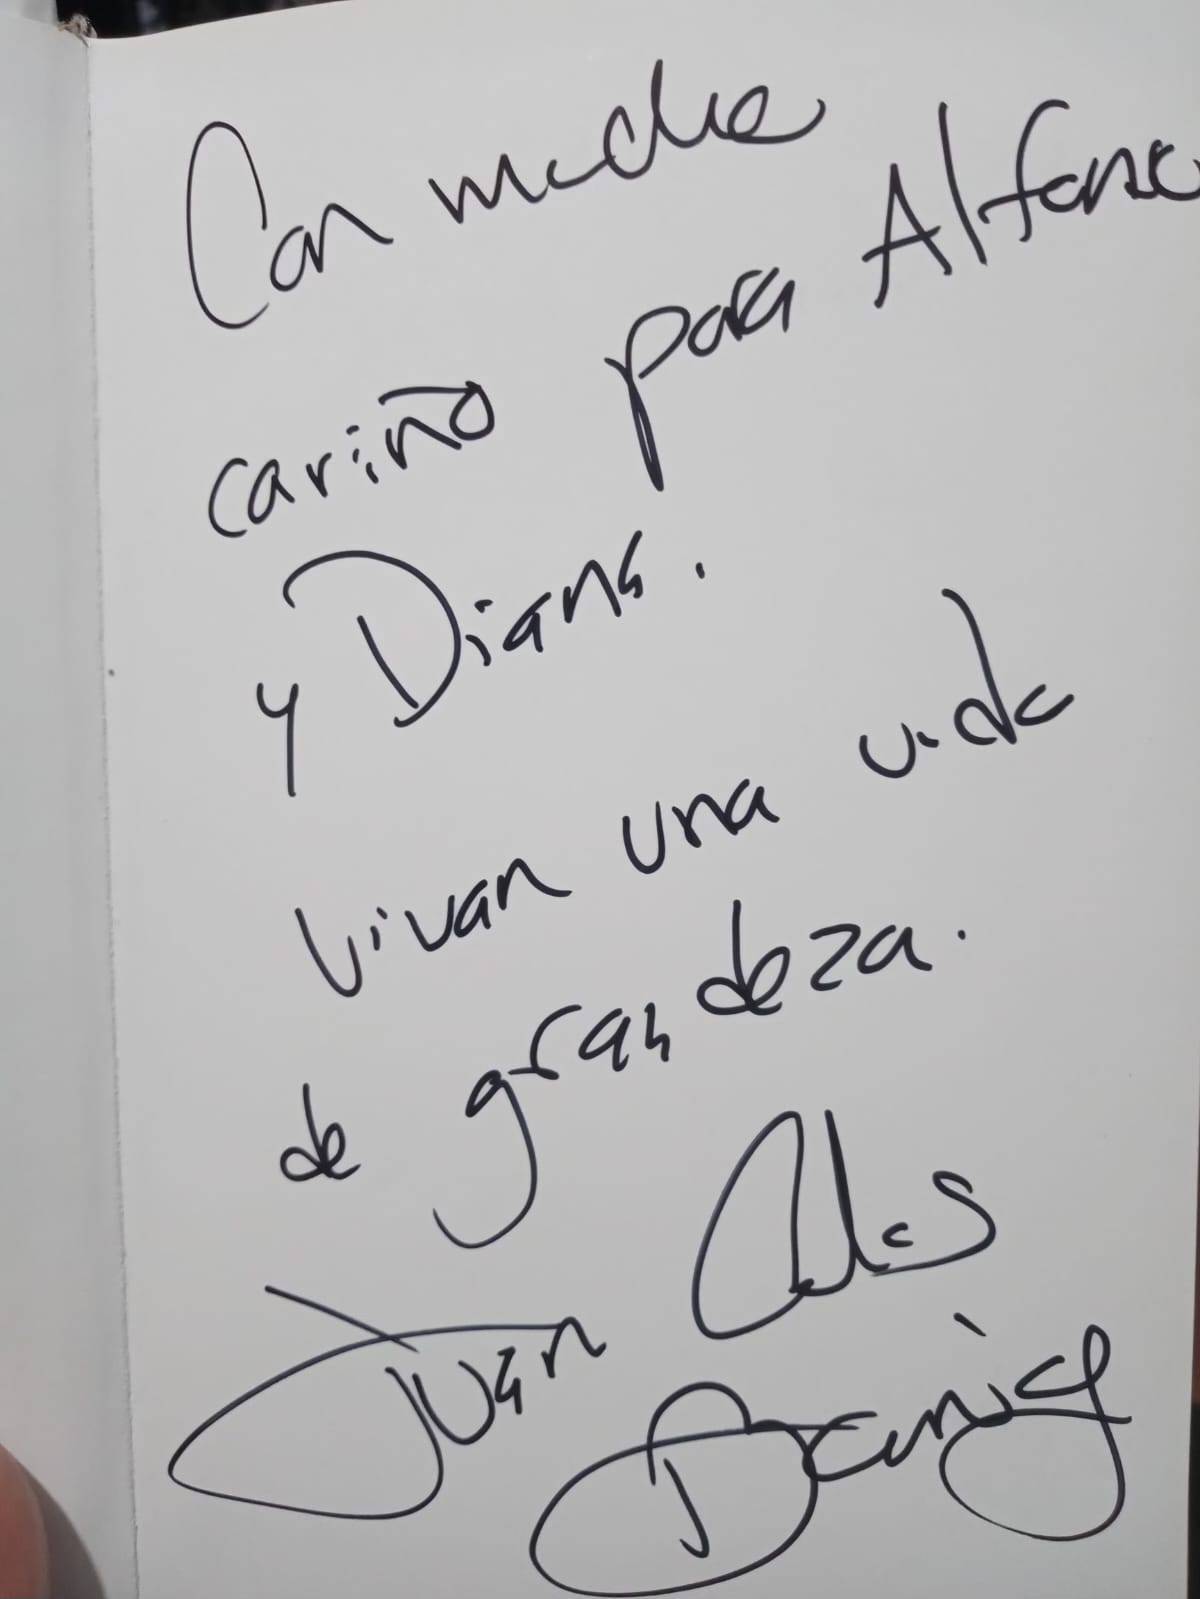 Con mucho
cariño para Alfonso
y Diana.
Vivan una vida
de grandeza.
Juan Carlos